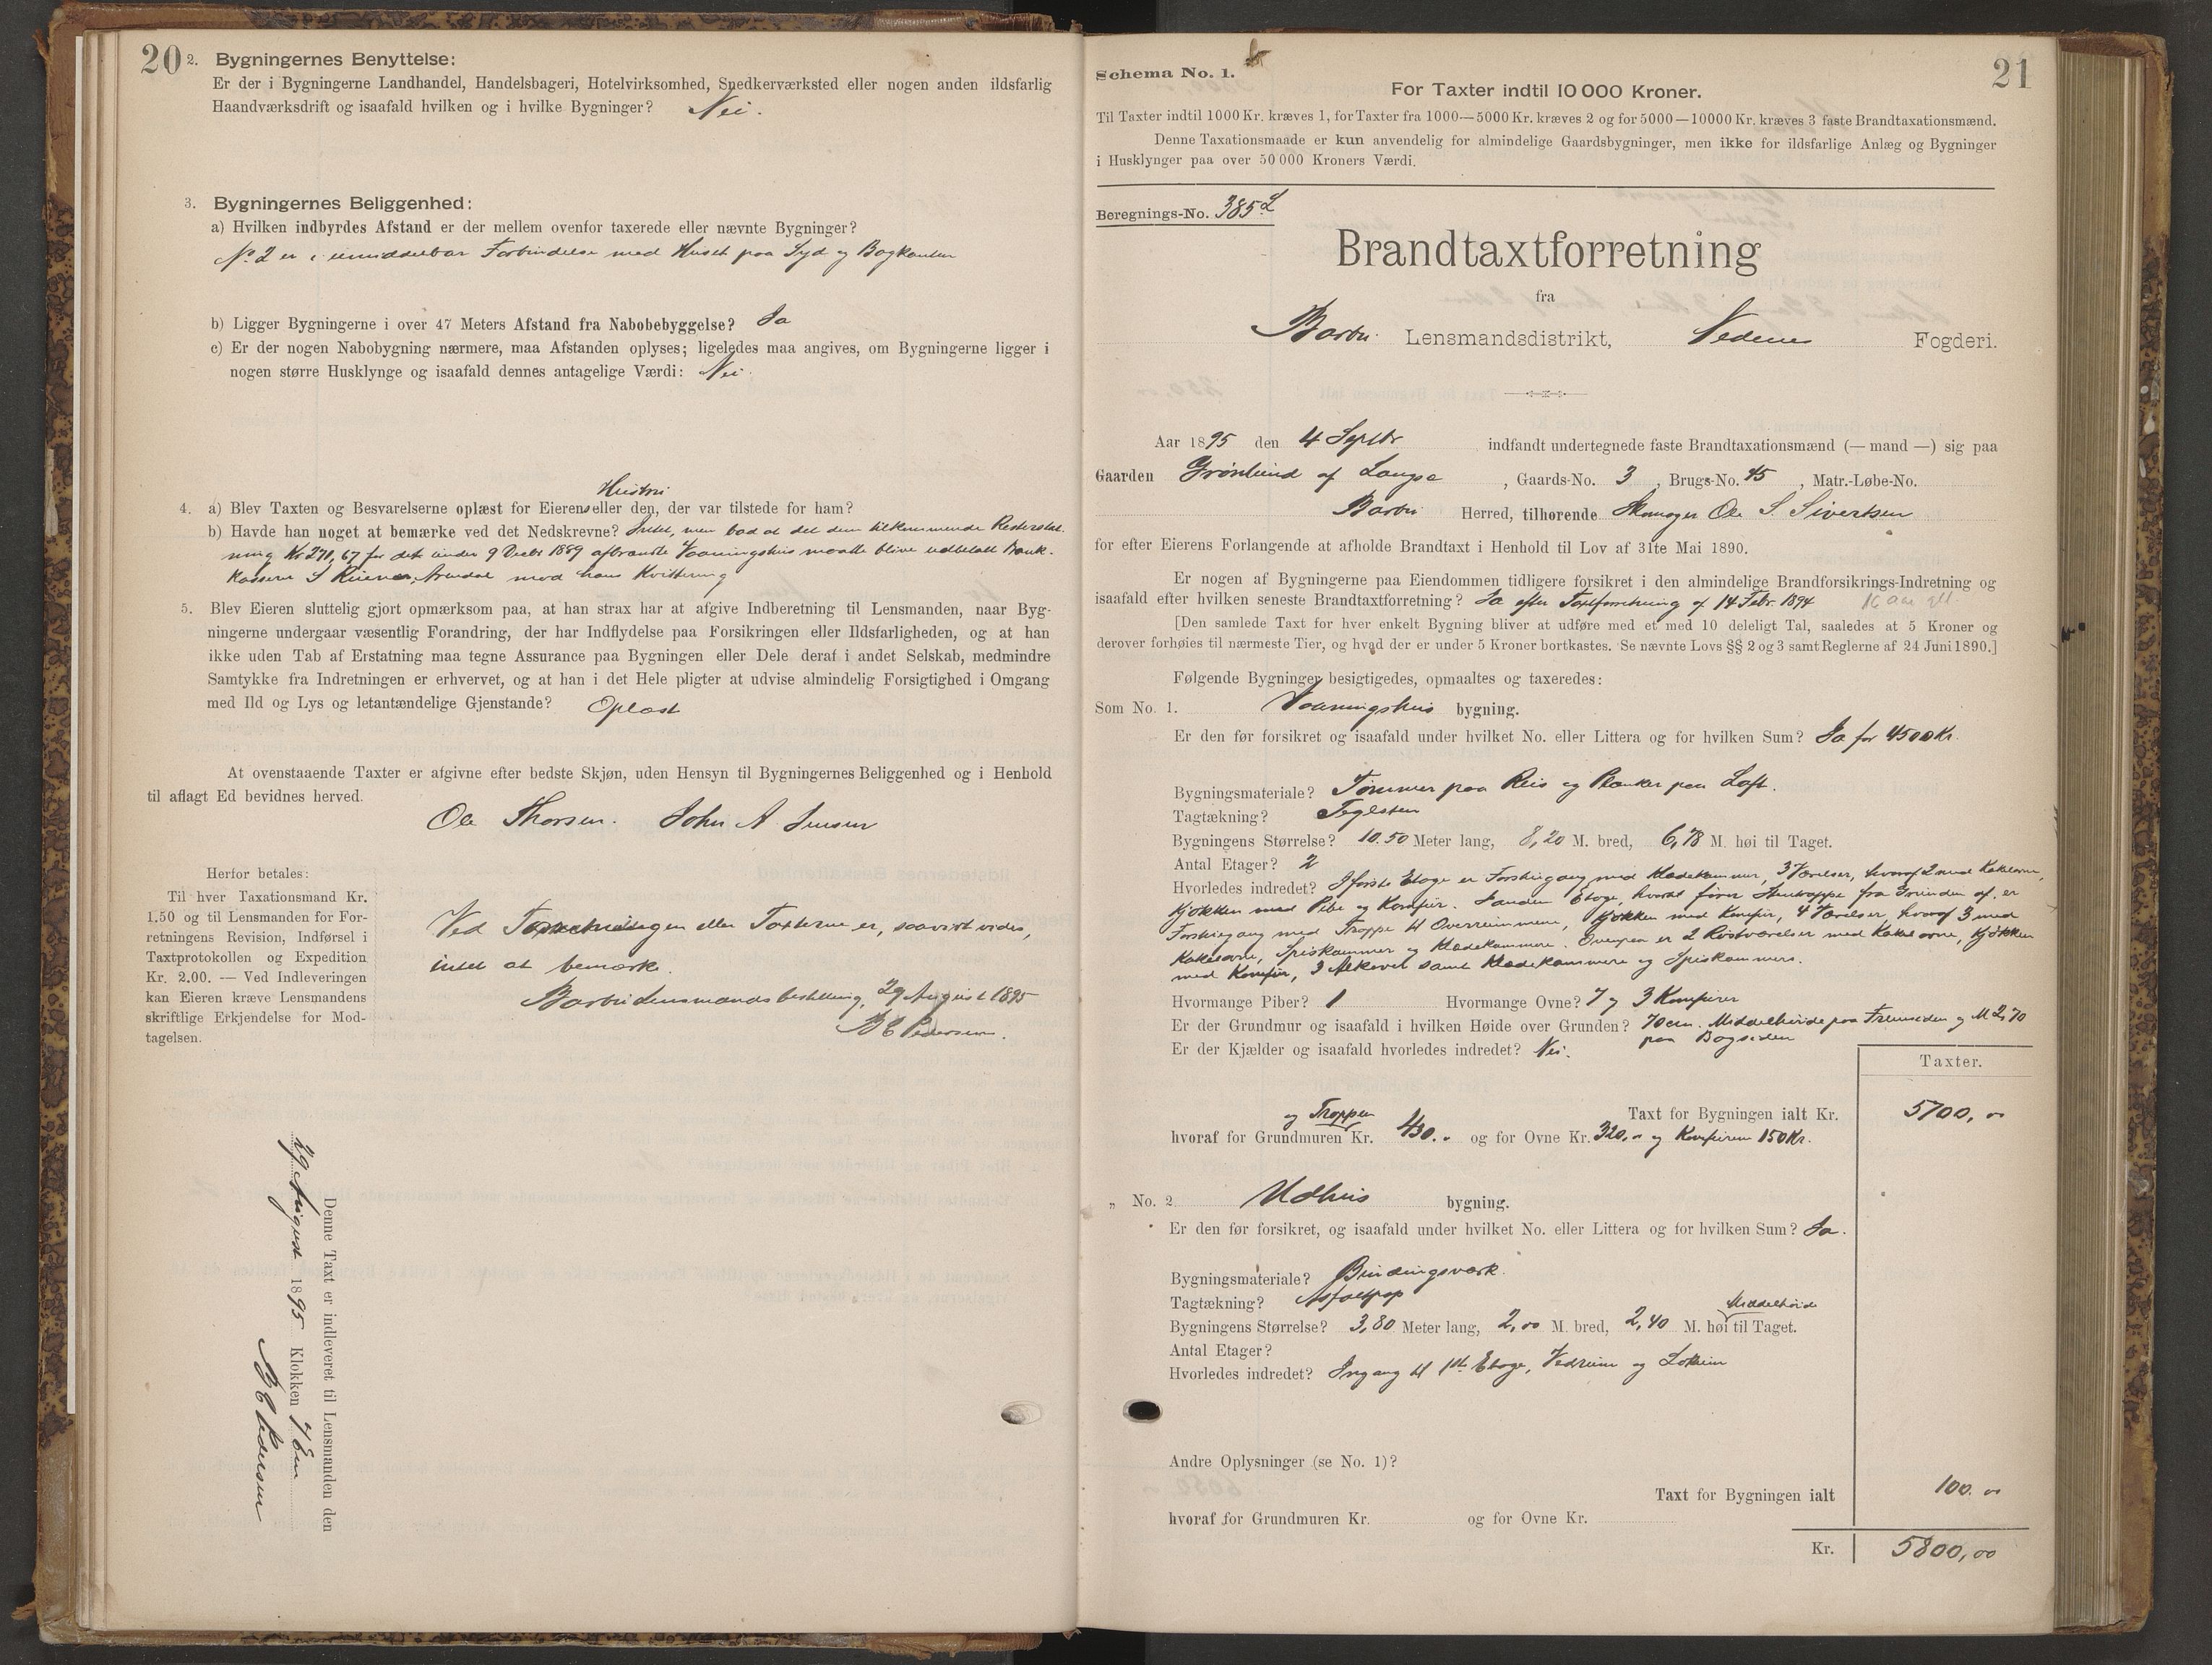 20
2. Bygningernes Benyttelse:
Er der i Bygningerne Landhandel, Handelsbageri, Hotelvirksomhed, Snedkerværksted eller nogen anden ildsfarlig
Haandværksdrift og isaafald hvilken og i hvilke Bygninger? Nei.
3. Bygningernes Beliggenhed:
a) Hvilken indbyrdes Afstand er der mellem ovenfor taxerede eller nævnte Bygninger?
No. 2 er i umiddelbar Forbindelse med Huset paa Syd og Bagkanten
b) Ligger Bygningerne i over 47 Meters Afstand fra Nabobebyggelse? Ja
c) Er der nogen Nabobygning nærmere, maa Afstanden oplyses; ligeledes maa angives, om Bygningerne ligger i
nogen større Husklynge og isaafald dennes antagelige Værdi: Nei.
Hustru
4. a) Blev Taxten og Besvarelserne oplæst for Eierens eller den, der var tilstede for ham?
b) Havde han noget at bemærke ved det Nedskrevne? Intet, men bad at det dem tilkommende Resterstat-
ning Kr 271,67 for det under 9 Decbr 1889 afbrændte Vaaningshus maatte blive udbetalt Bank-
kasserer S Arendal mod hans Kvittering
5. Blev Eieren sluttelig gjort opmærksom paa, at han strax har at afgive Indberetning til Lensmanden, naar Byg-
ningerne undergaar væsentlig Forandring, der har Indflydelse paa Forsikringen eller Ildsfarligheden, og at han
ikke uden Tab af Erstatning maa tegne Assurance paa Bygningen eller Dele deraf i andet Selskab, medmindre
Samtykke fra Indretningen er erhvervet, og at han i det Hele pligter at udvise almindelig Forsigtighed i Omgang
med Ild og Lys og letantændelige Gjenstande? Oplæst
At ovenstaaende Taxter er afgivne efter bedste Skjøn, uden Hensyn til Bygningernes Beliggenhed og i Henhold
til aflagt Ed bevidnes herved.
Ole Thorsen. John A. Jensen
Herfor betales:
Til hver Taxationsmand Kr.
1.50 og til Lensmanden for For-
retningens Revision, Indførsel i
Taxtprotokollen og Expedition
Kr. 2.00. — Ved Indleveringen
kan Eieren kræve Lensmandens
skriftlige Erkjendelse for Mod-
tagelsen.
Ved Forretningen eller Taxterne er, saavidt vides,
intet at bemærke.
Barbu Lensmandsbestilling, 29 August 1895
B E Pedersen.
Denne Taxt er indleveret til Lensmanden den
29 August 1895 Klokken 7 Em
B E Pedersen
21
Schema No. 1.
For Taxter indtil 10 000 Kroner.
Til Taxter indtil 1000 Kr. kræves 1, for Taxter fra 1000—5000 Kr. kræves 2 og for 5000—10000 Kr. kræves 3 faste Brandtaxationsmænd.
Denne Taxationsmaade er kun anvendelig for almindelige Gaardsbygninger, men ikke for ildsfarlige Anlæg og Bygninger
i Husklynger paa over 50 000 Kroners Værdi.
Beregnings-No. 385 L
Brandtaxtforretning
fra
Barbu Lensmandsdistrikt, Nedenes Fogderi.
Aar 1895 den 4 Septbr indfandt undertegnede faste Brandtaxationsmænd (— mand —) sig paa
Gaarden Grønlund af Langsæ, Gaards-No. 3, Brugs-No. 45, Matr.-Løbe-No.
Barbu Herred, tilhørende Skomager Ole S. Sivertsen
for efter Eierens Forlangende at afholde Brandtaxt i Henhold til Lov af 31te Mai 1890.
Er nogen af Bygningerne paa Eiendommen tidligere forsikret i den almindelige Brandforsikrings-Indretning og
isaafald efter hvilken seneste Brandtaxtforretning? Ja efter Taxtforretning af 14 Febr. 1894
[Den samlede Taxt for hver enkelt Bygning bliver at udføre med et med 10 deleligt Tal, saaledes at 5 Kroner og
derover forhøies til nærmeste Tier, og hvad der er under 5 Kroner bortkastes. Se nævnte Lovs §§ 2 og 3 samt Reglerne af 24 Juni 1890.]
Følgende Bygninger besigtigedes, opmaaltes og taxeredes:
Som No. 1. Vaaningshus bygning.
Er den før forsikret og isaafald under hvilket No. eller Littera og for hvilken Sum? Ja for 4500 Kr.
Bygningsmateriale? Tømmer paa Reis og Planker paa Loft.
Tagtækning? Teglsten
Bygningens Størrelse? 10.50 Meter lang, 8,20 M. bred, 6,78 M. høi til Taget.
Antal Etager? 2
Hvorledes indredet? I første Etage er Forstuegang med Klædekammer, 3 Værelser, hvoraf 2 med Kakelovne,
Kjøkken med Pibe og Komfur. I anden Etage, hvortil fører Stentrappe fra Grunden af, er
Forstuegang med Trappe til Overrummene, Kjøkken med Komfur, 4 Værelser, hvoraf 3 med
Kakelovne, Spiskammer og Klædekammere. Ovenpaa er 2 Kvistværelser med Kakelovne, Kjøkken
med Komfur, 3 Alkover samt Klædekammere og Spiskammers.
Hvormange Piber? 1 Hvormange Ovne? 7 og 3 Komfurer
Er der Grundmur og isaafald i hvilken Høide over Grunden? 70 cm. Middelhøide paa Fremsiden og M 2,70
paa Bagsiden
Er der Kjælder og isaafald hvorledes indredet? Nei.
Taxter.
Taxt for Bygningen ialt Kr. 5700,00
og Trappen
hvoraf for Grundmuren Kr. 430.. og for Ovne Kr. 320,00 og Komfurene 150 Kr.
„ No. 2 Udhus bygning.
Er den før forsikret, og isaafald under hvilket No. eller Littera og for hvilken Sum? Ja.
Bygningsmateriale? Bindingsværk.
Tagtækning? Asfaltpap
Middelhøide
Bygningens Størrelse? 3,80 Meter lang, 2,00 M. bred, 2,40 M. høi til Taget.
Antal Etager?
Hvorledes indredet? Indgang til 1ste Etage, Vedrum og Lokum
Andre Oplysninger (se No. 1)?
Taxt for Bygningen ialt 100.00
hvoraf for Grundmuren Kr. og for Ovne Kr.
Kr. 5800,00